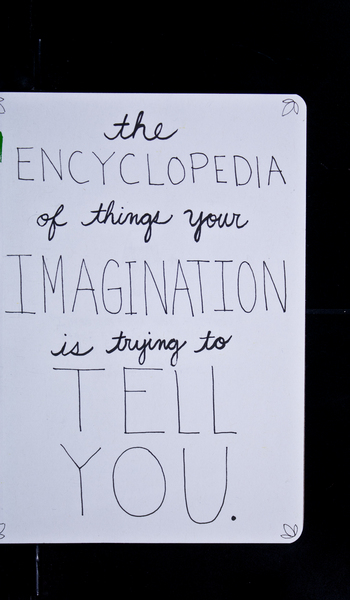 the
ENCYCLOPEDIA
of things your
IMAGINATION
is trying to
TELL
YOU.